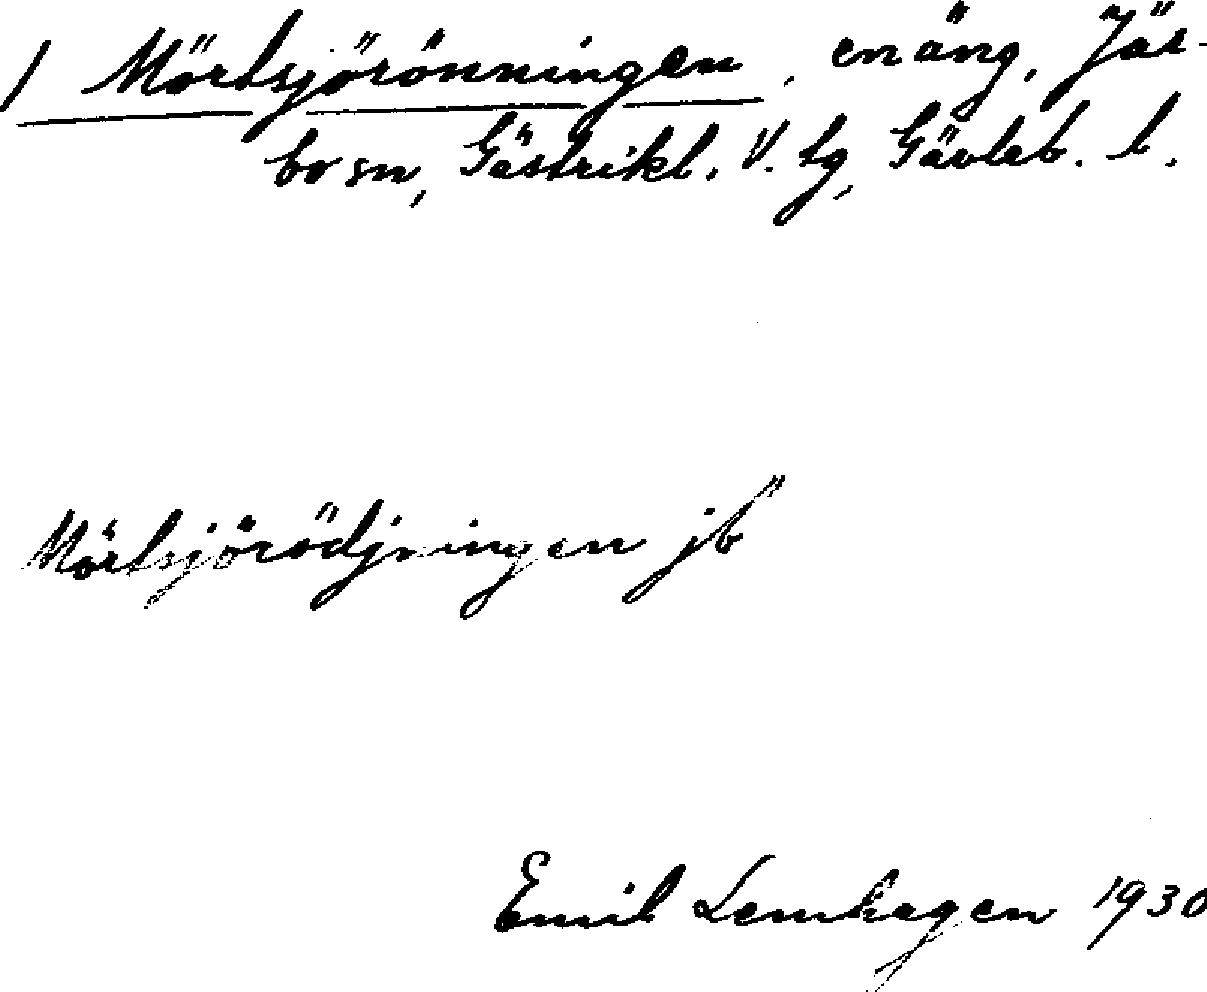 / Mörtsjörönningen, en äng, Jär-
bo sn, Gästrikl. V. tg, Gävleb. l.
Mörtsjörödjningen jb"
Emil Lemhagen 1930